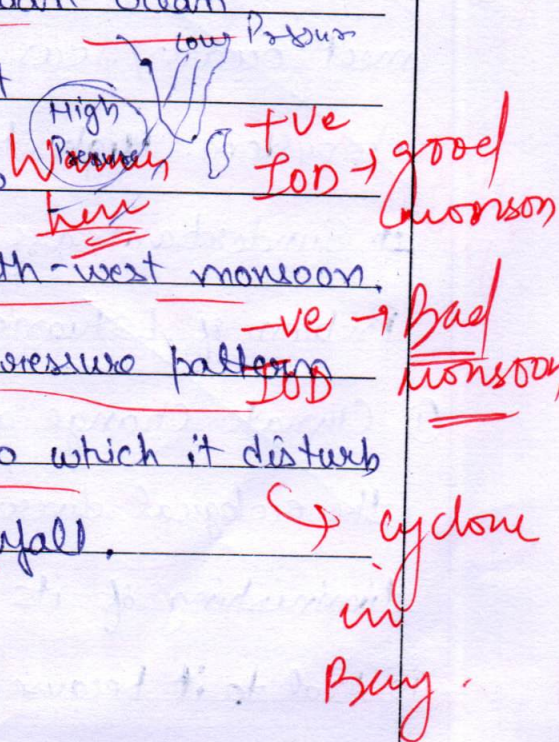 Low Pressure
High
Pressure
Warmer
here
+ve
IOD → good
monsoon
th-west monsoon.
-ve → Bad
IOD monsoon
ressure pattern
o which it disturb
↳ cyclone
in
Bay.